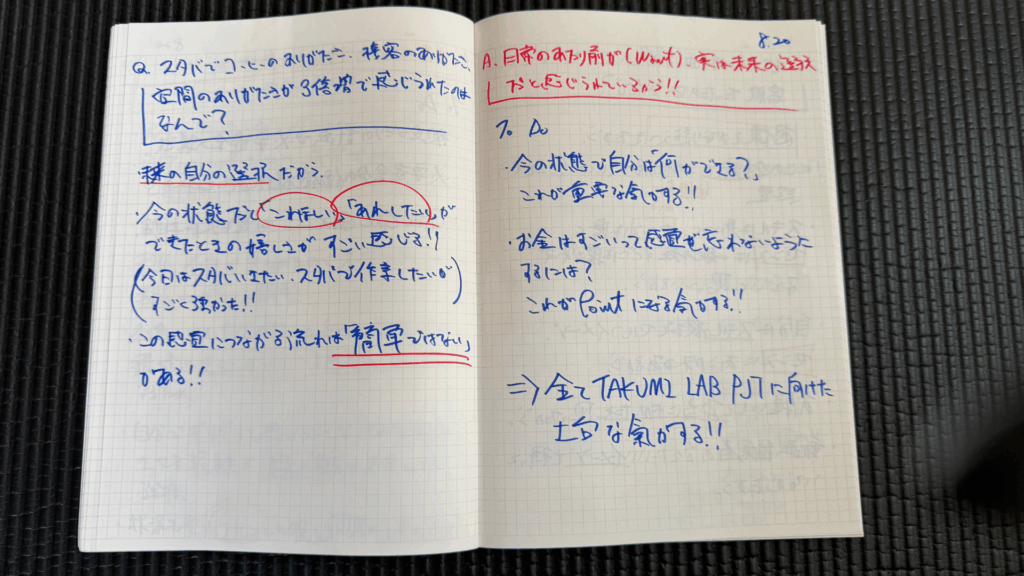 Q. スタバでコーヒーのありがたさ、接客のありがたさ、
空間のありがたさが3倍増で感じられたのは
なんで?
・未来の自分の選択だから。
・今の状態だと「これほしい」「あれしたい」が
できたときの嬉しさがすごい感じる!!
(今日はスタバいきたい、スタバで作業したいが
すごく強かった!!)
・この感謝につながる流れは「簡単ではない」
がある!!
8.20
A. 日常のあたり前が(Want)、実は未来の選択
だと感じられているから!!
To Do
・今の状態で自分は「何ができる?」
これが重要な気がする!!
・お金はすごいって感謝を忘れないように
するには?
これがPointになる気がする!!
⇒ 全てTAKUMI LAB PJTに向けた
土台な氣がする!!